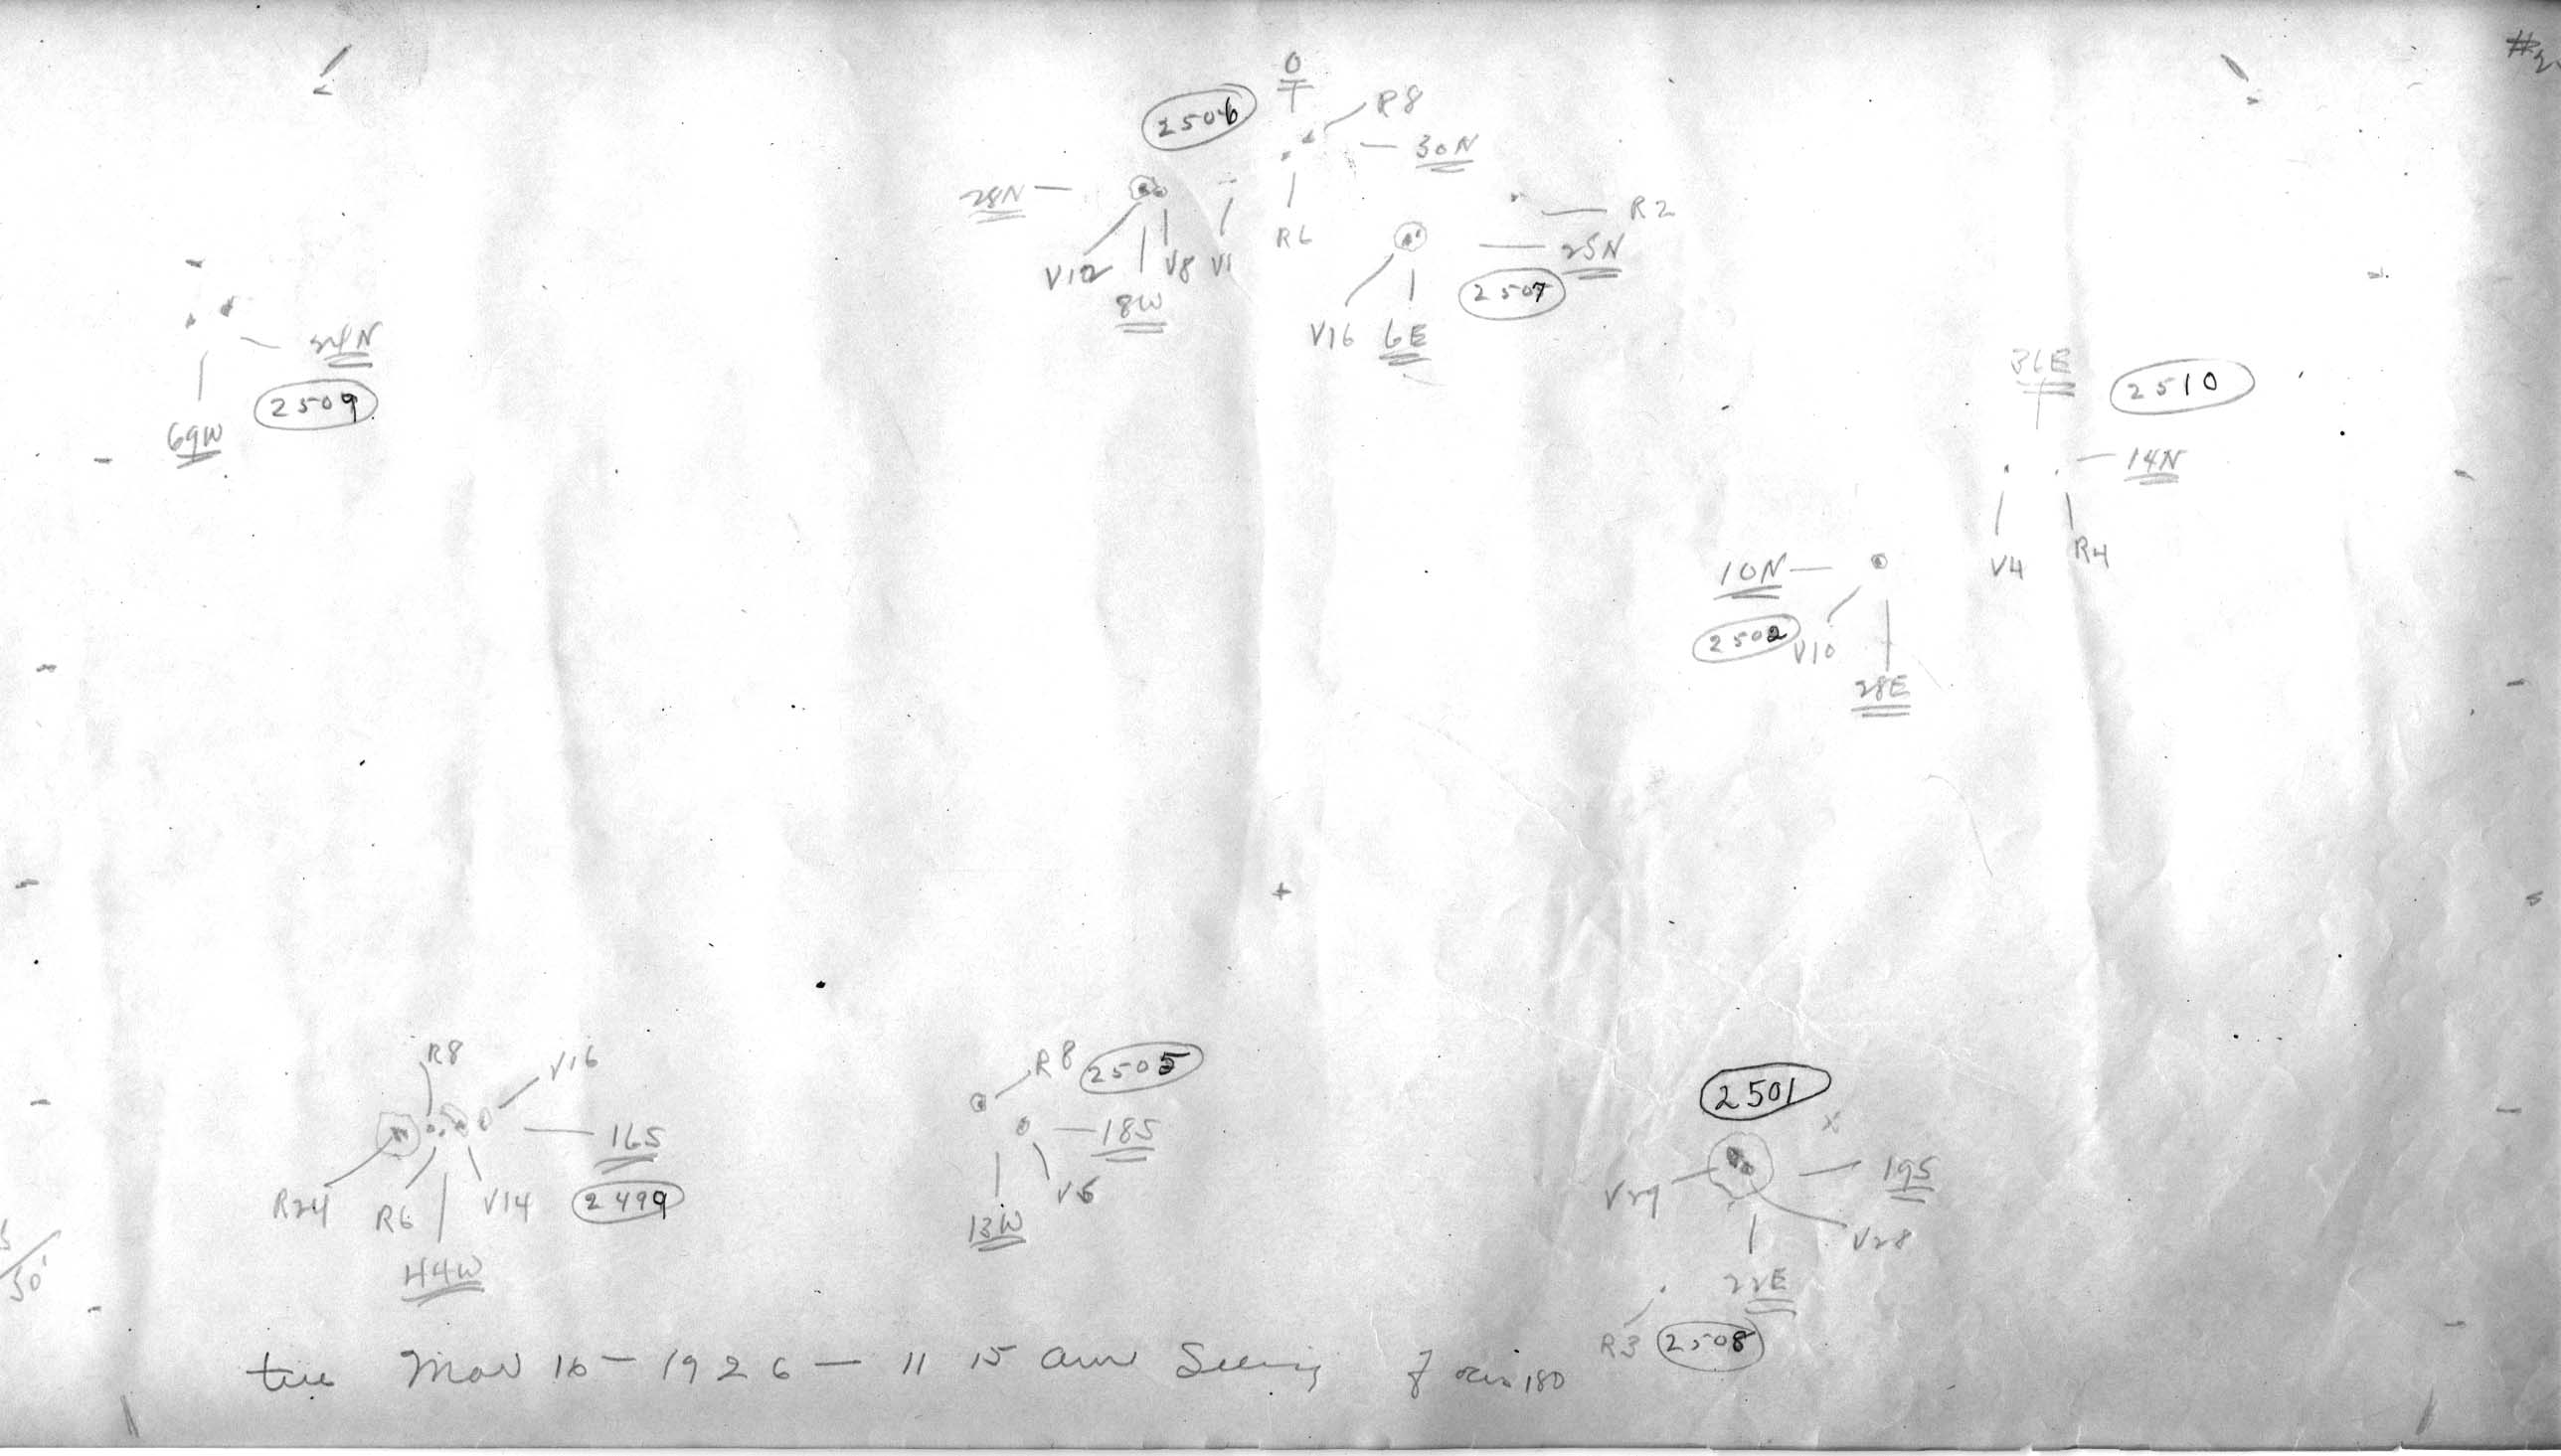 0
2506
R8
30N
28N
R2
R6
25N
V12
V8
V1
8W
2507
V16
6E
24N
2509
69W
36E
2510
14N
V4
R4
10N
2502
V10
28E
R8
V16
R8
2505
2501
16S
18S
19S
R24
R6
V14
2499
V6
V29
V28
13W
44W
22E
R3
2508
tue Mar 16 - 1926 - 11 15 am Seeing fair 180